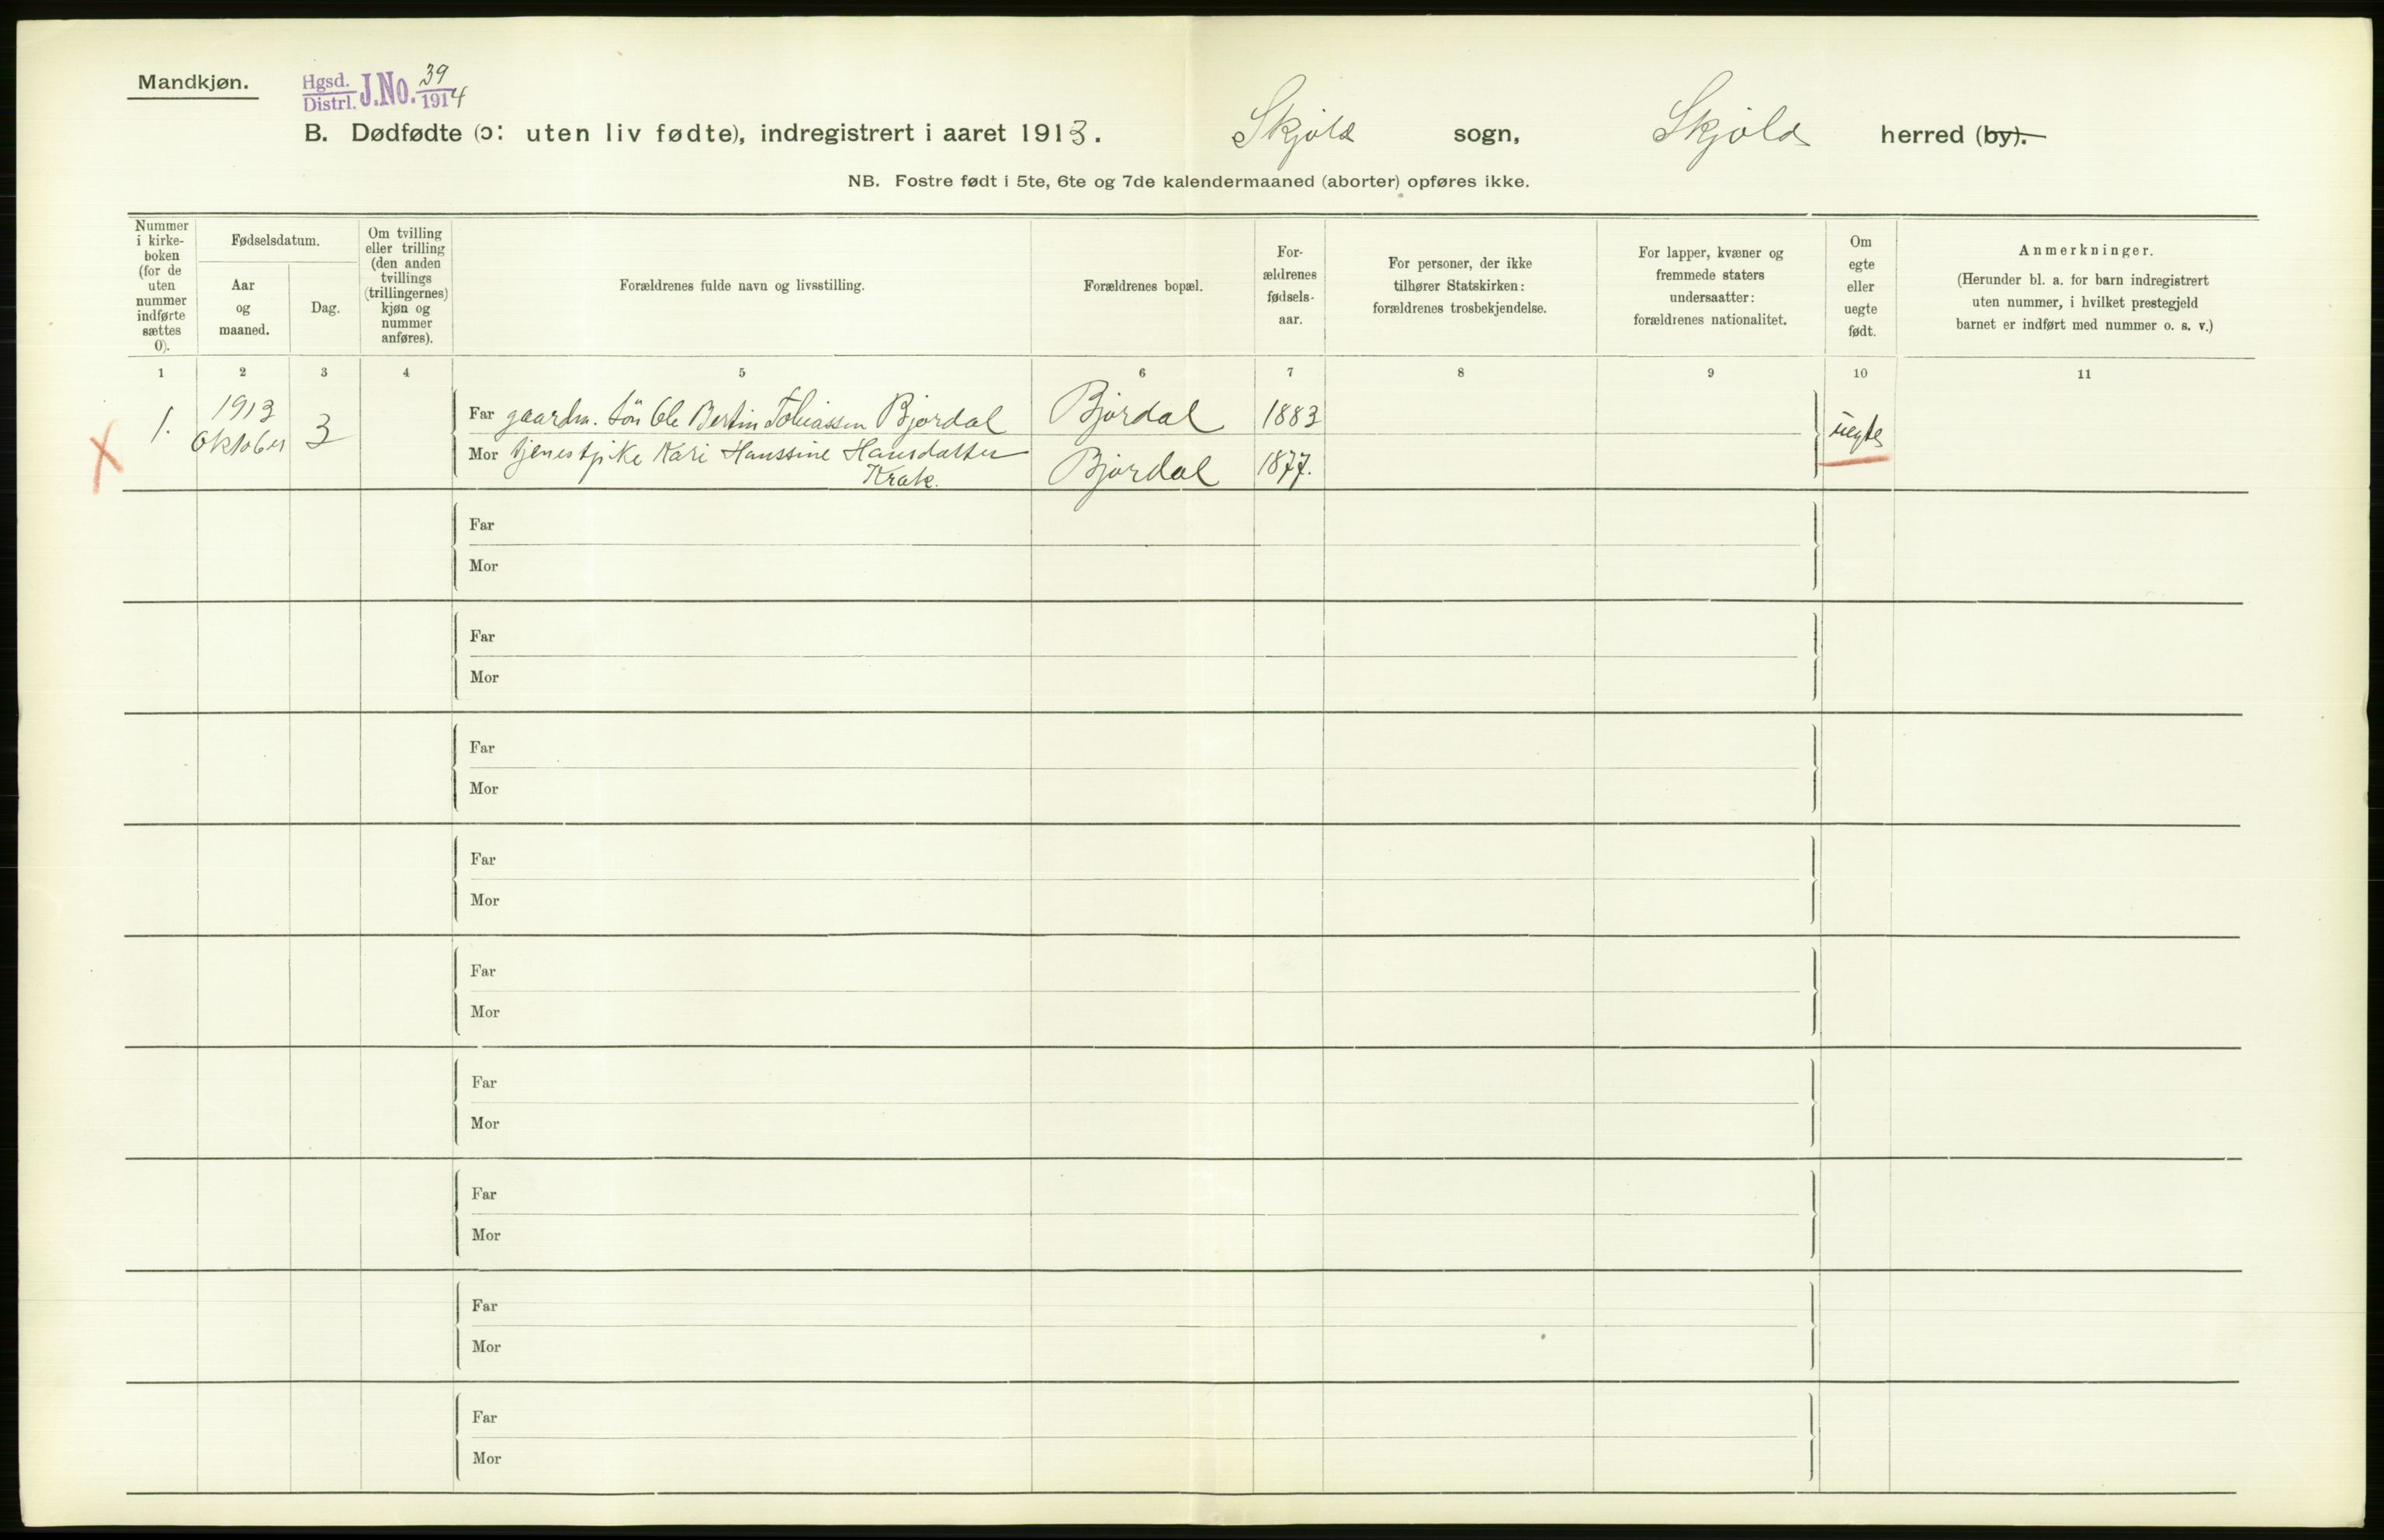 Mandkjøn.
Hgsd. Distrl. J.No. 39/1914
B. Dødfødte (ɔ: uten liv fødte), indregistrert i aaret 1913. Skjold sogn, Skjold herred (by).
NB. Fostre født i 5te, 6te og 7de kalendermaaned (aborter) opføres ikke.
Nummer
i kirke-
boken
(for de
uten
nummer
indførte
sættes
0).
Fødselsdatum.
Aar
og
maaned.
Dag.
Om tvilling
eller trilling
(den anden
tvillings
(trillingernes)
kjøn og
nummer
anføres).
Forældrenes fulde navn og livsstilling.
Forældrenes bopæl.
For-
ældrenes
fødsels-
aar.
For personer, der ikke
tilhører Statskirken:
forældrenes trosbekjendelse.
For lapper, kvæner og
fremmede staters
undersaatter:
forældrenes nationalitet.
Om
egte
eller
uegte
født.
Anmerkninger.
(Herunder bl. a. for barn indregistrert
uten nummer, i hvilket prestegjeld
barnet er indført med nummer o. s. v.)
1 2 3 4 5 6 7 8 9 10 11
1. 1913 Oktober 3
Far gaardm. søn Ole Bertin Tobiassen Bjordal Bjordal 1883 uegte
Mor tjenestpike Kari Hanssine Hansdatter Bjordal 1877.
Krak.
Far
Mor
Far
Mor
Far
Mor
Far
Mor
Far
Mor
Far
Mor
Far
Mor
Far
Mor
Far
Mor